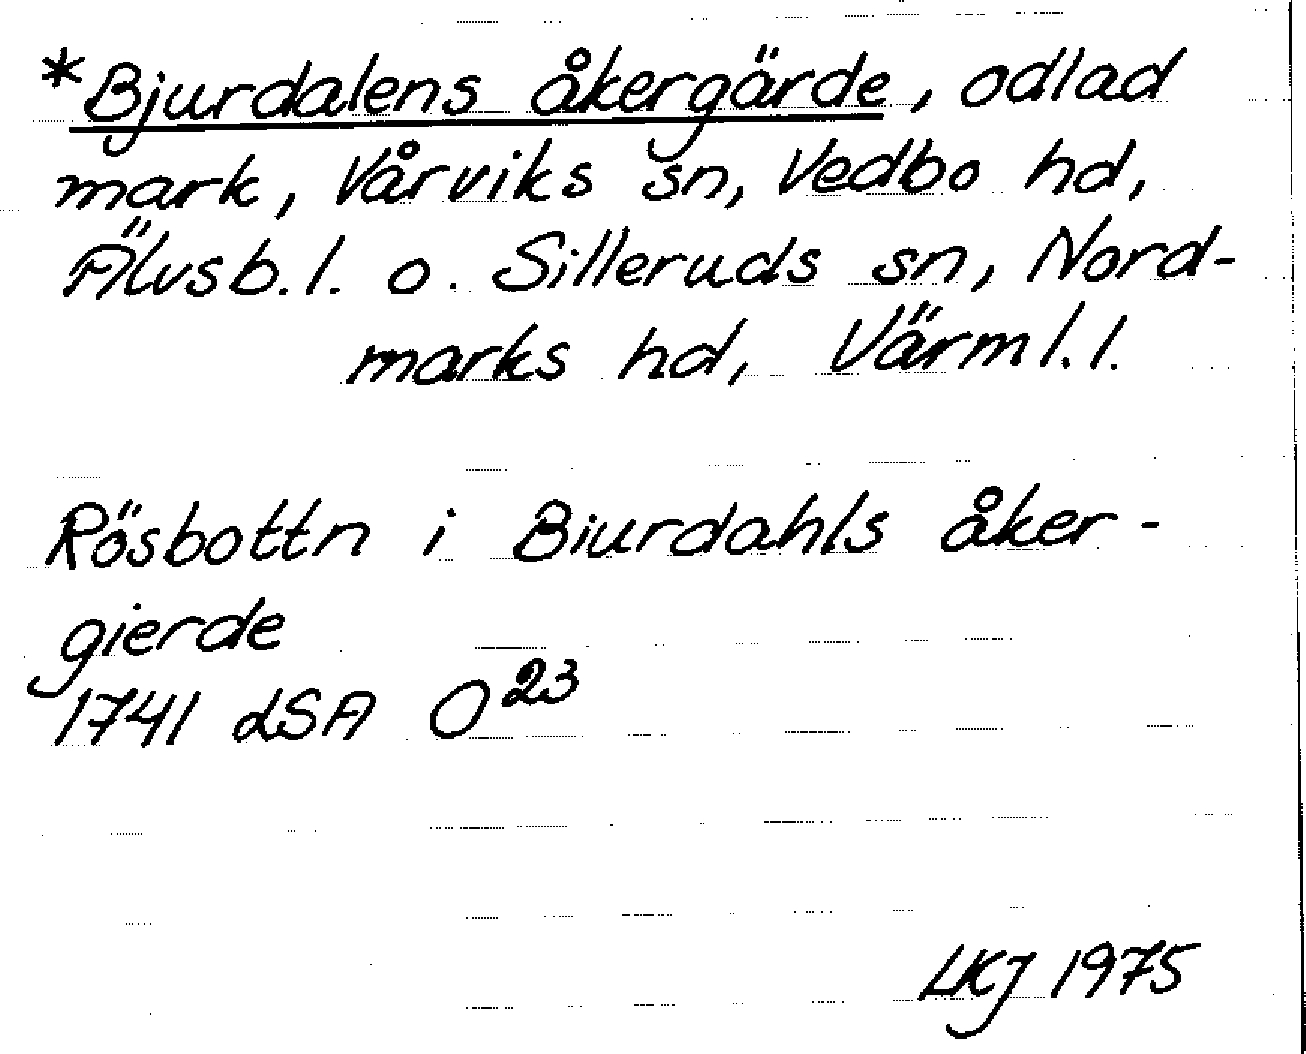 *Bjurdalens åkergärde, odlad
mark, Vårviks sn, Vedbo hd,
Älvsb.l. o. Silleruds sn, Nord-
marks hd, Värml.l.
Rösbottn i Biurdahls åker-
gierde
1741 LSA O²³
LKJ 1975